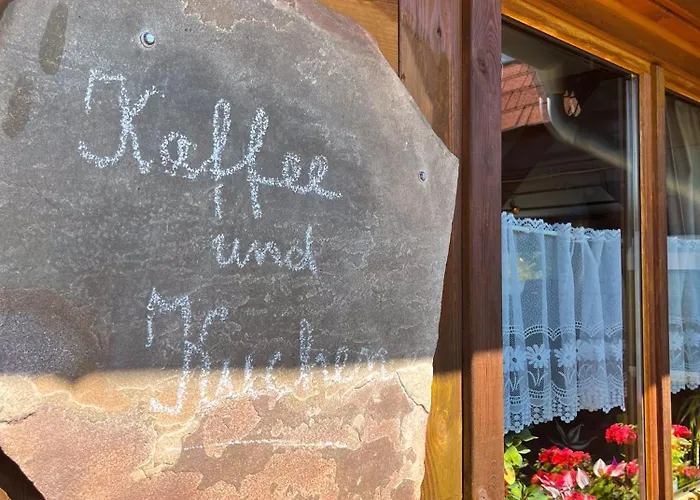 Kaffee
und
Kuchen